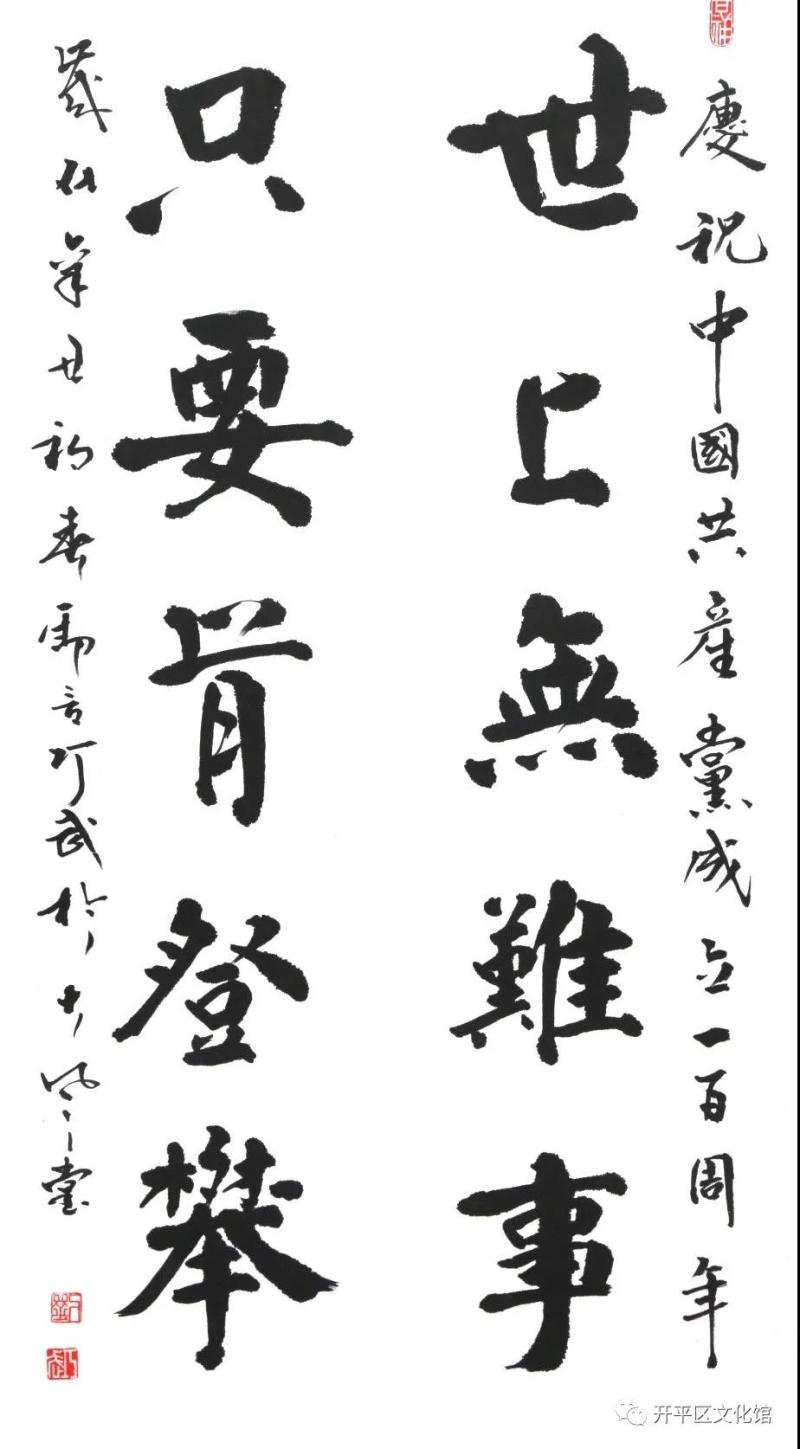 慶祝中國共產黨成立一百周年
世上無難事
只要肯登攀
歲在辛丑初春 於大風堂
开平区文化馆